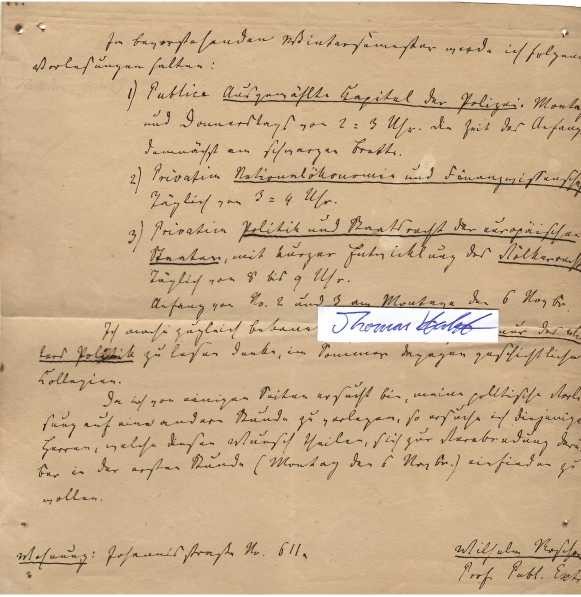 Im bevorstehenden Wintersemester werde ich folgen
Vorlesungen halten:
1) Publice Ausgewählte Capitel der Polizei. Monta
und Donnerstags von 2-3 Uhr. Die Zeit des Anfang
demnächst am schwarzen Brette.
2) Privatim Nationalökonomie und Finanzwissensch
Täglich von 3-4 Uhr.
3) Privatim Politik und Staatsrecht der europäischen
Staaten, mit kurzer Entwicklung des Völkerrech
Täglich von 8 bis 9 Uhr.
Anfang von No. 2 und 3 am Montage den 6 Novbr.
Ich mache zugleich bekan
Politik zu lesen denke, im Sommer dagegen geschichtliche
Collegien.
Da ich von einigen Seiten ersucht bin, meine politische Vorle
sung auf eine andere Stunde zu verlegen, so ersuche ich diejenige
Herren, welche diesen Wunsch theilen, sich zur Verabredung darü
ber in der ersten Stunde (Montag den 6 Novbr.) einfinden zu
wollen.
Wohnung: Johannisstraße No. 611.
Wilhelm Rosche
Prof. Publ. Ext